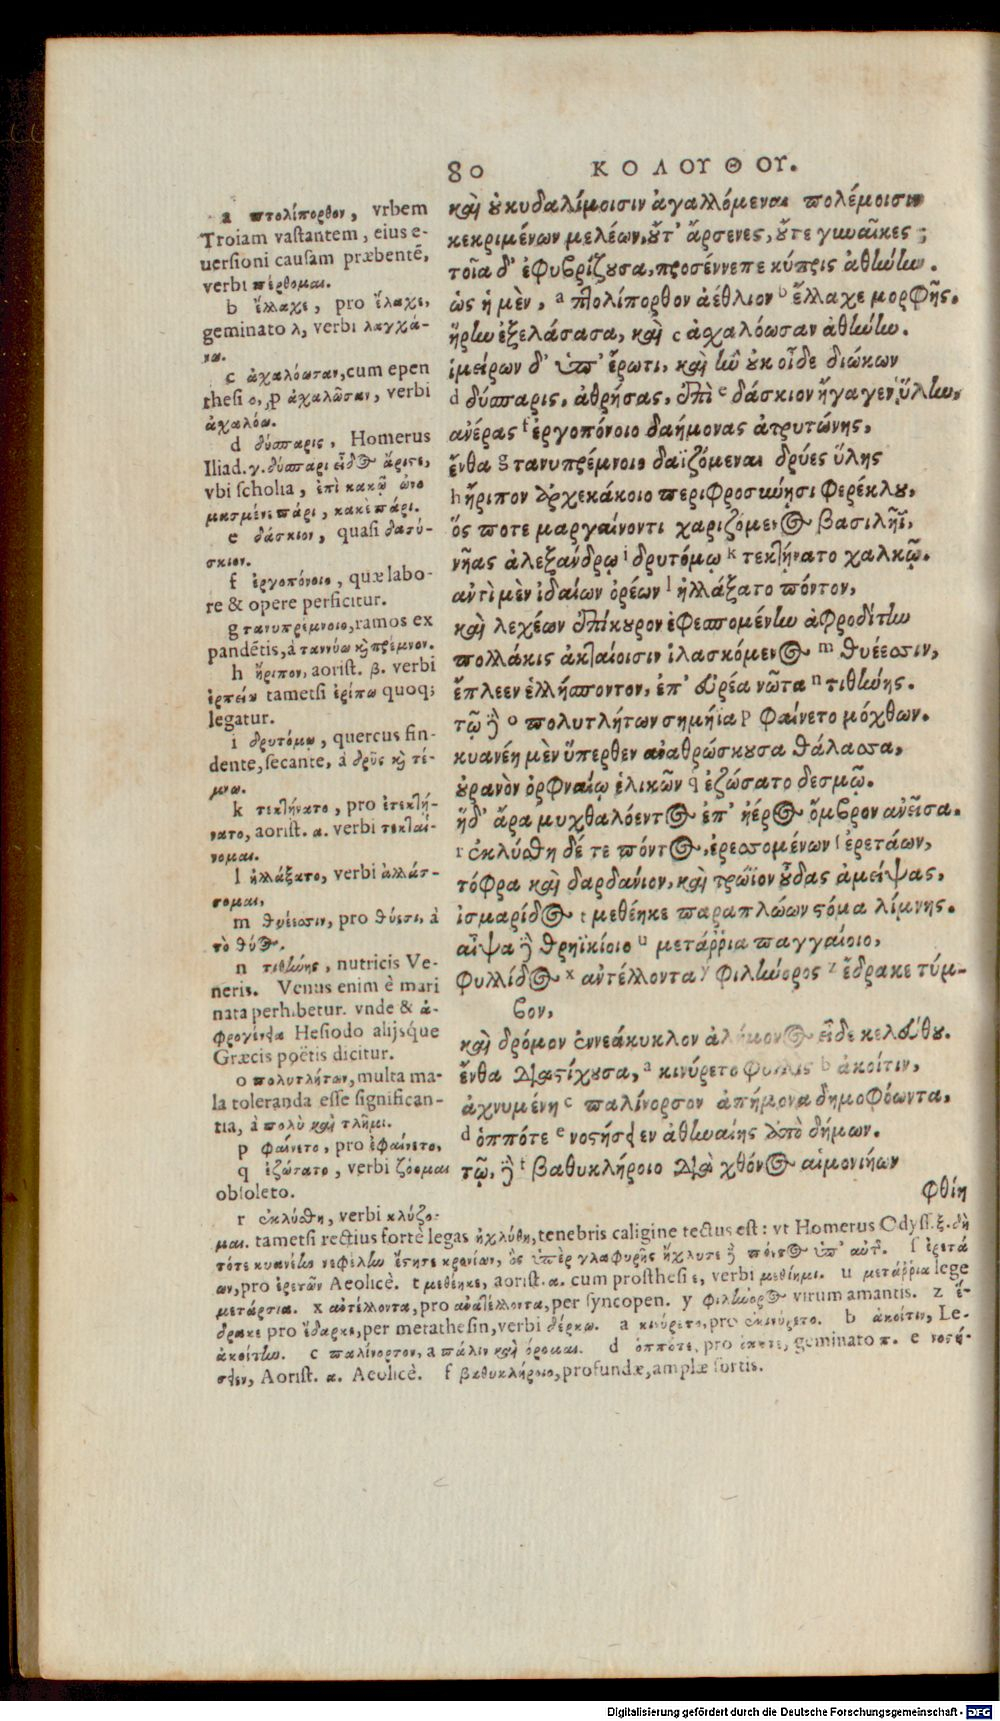 80 ΚΟΛΟΥΘΟΥ.
καὶ οὐ κυδαλίμοισιν ἀγαλλόμεναι πολέμοισιν
κεκριμένων μελέων, οὔτ' ἄρσενες, οὔτε γυναῖκες ;
τοῖα δ' ἐφυβρίζουσα, προσέννεπε κύπρις ἀθήνην.
ὡς ἡ μὲν, a πτολίπορθον ἀέθλιον b ἔλλαχε μορφῆς.
ἥρην ἐξελάσασα, καὶ c ἀχαλόωσαν ἀθήνην.
ἱμείρων δ' ὑπ' ἔρωτι, καὶ ἣν οὐκ οἶδε διώκων
d δύσπαρις, ἀθρήσας, ἐπὶ e δάσκιον ἤγαγεν ὕλην,
ἀνέρας f ἐργοπόνοιο δαήμονας ἀτρυτώνης,
ἔνθα g τανυπρέμνοιο δαϊζόμεναι δρύες ὕλης
h ἤριπον ἀρχεκάκοιο περιφροσύνησι φερέκλου,
ὅς ποτε μαργαίνοντι χαριζόμενος βασιλῆϊ,
νῆας ἀλεξάνδρῳ i δρυτόμῳ k τεκτήνατο χαλκῷ.
ἀντὶ μὲν ἰδαίων ὀρέων l ἠλλάξατο πόντον,
καὶ λεχέων ἐπίκουρον ἐφεσπομένην ἀφροδίτην
πολλάκις ἀκταίοισιν ἱλασκόμενος m θυέεσσιν,
ἔπλεεν ἑλλήσποντον, ἐπ' εὐρέα νῶτα n τιθήνης.
τῷ δὲ o πολυτλήτων σημήϊα p φαίνετο μόχθων.
κυανέη μὲν ὕπερθεν ἀναθρώσκουσα θάλασσα,
οὐρανὸν ὀρφναίῳ ἑλικῶν q ἐζώσατο δεσμῷ.
ἡ δ' ἄρα μυχθαλόεντος ἐπ' ἠέρος ὄμβρον ἀνεῖσα.
r ἐκλύσθη δέ τε πόντος, ἐρεσσομένων ſ ἐρετάων,
τόφρα καὶ δαρδανίον, καὶ τρώϊον οὖδας ἀμείψας,
ἰσμαρίδος t μεθέηκε παραπλώων στόμα λίμνης.
αἶψα δὲ θρηϊκίοιο u μετάῤῥια παγγαίοιο,
φυλλίδος x ἀντέλλοντα y φιλήνορος z ἔδρακε τύμ-
βον,
καὶ δρόμον ἐννεάκυκλον ἀλήμονος εἶδε κελεύθου.
ἔνθα διαστίχουσα, a κινύρετο φυλλὶς b ἀκοίτιν,
ἀχνυμένη c παλίνορσον ἀπήμονα δημοφόωντα,
d ὁππότε e νοστήσειεν ἀθηναίης ἀπὸ δήμων.
τῷ, δὲ f βαθυκλήροιο διὰ χθόνος αἱμονιήων
φθίη
a πτολίπορθον, vrbem
Troiam vastantem, eius e-
uersioni causam præbentē,
verbi πέρθομαι.
b ἔλλαχε, pro ἔλαχε,
geminato λ, verbi λαγχά-
νω.
c ἀχαλόωσαν, cum epen
thesi o, p ἀχαλῶσαν, verbi
ἀχαλόω.
d δύσπαρις, Homerus
Iliad. γ. δύσπαρι εἶδος ἄριστε,
vbi scholia, ἐπὶ κακῷ ὠνο
μασμένε πάρι, κακὲ πάρι.
e δάσκιον, quasi δασύ-
σκιον.
f ἐργοπόνοιο, quæ labo-
re & opere perficitur.
g τανυπρέμνοιο, ramos ex
pandētis, à ταννύω καὶ πρέμνον.
h ἤριπον, aorist. β. verbi
ἐρπεῖν tametsi ἐρίπω quoq;
legatur.
i δρυτόμῳ, quercus fin-
dente, secante, à δρῦς καὶ τέ-
μνω.
k τεκτήνατο, pro ἐτεκτή-
νατο, aorist. α. verbi τεκταί-
νομαι.
l ἠλλάξατο, verbi ἀλλάσ-
σομαι,
m θυέεσσιν, pro θύεσι, à
τὸ θύος.
n τιθήνης, nutricis Ve-
neris. Venus enim è mari
nata perhibetur. vnde & ἀ-
φρογένεια Hesiodo alijsque
Græcis poëtis dicitur.
o πολυτλήτων, multa ma-
la toleranda esse significan-
tia, à πολὺ καὶ τλῆμι.
p φαίνετο, pro ἐφαίνετο,
q ἐζώσατο, verbi ζόομαι
obsoleto.
r ἐκλύσθη, verbi κλύζο-
μαι. tametsi rectius fortè legas ἠχλύθη, tenebris caligine tectus est: vt Homerus Odyss. ξ. δὴ
τότε κυανέην νεφέλην ἔστησε κρονίων, ὃς ὑπὲρ γλαφυρῆς ἤχλυσε δὲ πόντος ὑπ' αὐτῆς. ſ ἐρετά
ων, pro ἐρετῶν Aeolicè. t μεθέηκε, aorist. α. cum prosthesi ε, verbi μεθίημι. u μετάῤῥια lege
μετάρσια. x ἀντέλλοντα, pro ἀνατέλλοντα, per syncopen. y φιλήνορος virum amantis. z ἔ-
δρακε pro ἔδαρκε, per metathesin, verbi δέρκω. a κινύρετο, pro ἐκινύρετο. b ἀκοίτιν, Le-
ἀκοίτην. c παλίνορσον, a πάλιν καὶ ὄρομαι. d ὁππότε, pro ὁπότε, geminato π. e νοστή-
σειεν, Aorist. α. Aeolicè. f βαθυκλήροιο, profundæ, amplæ sortis.
Digitalisierung gefördert durch die Deutsche Forschungsgemeinschaft - DFG